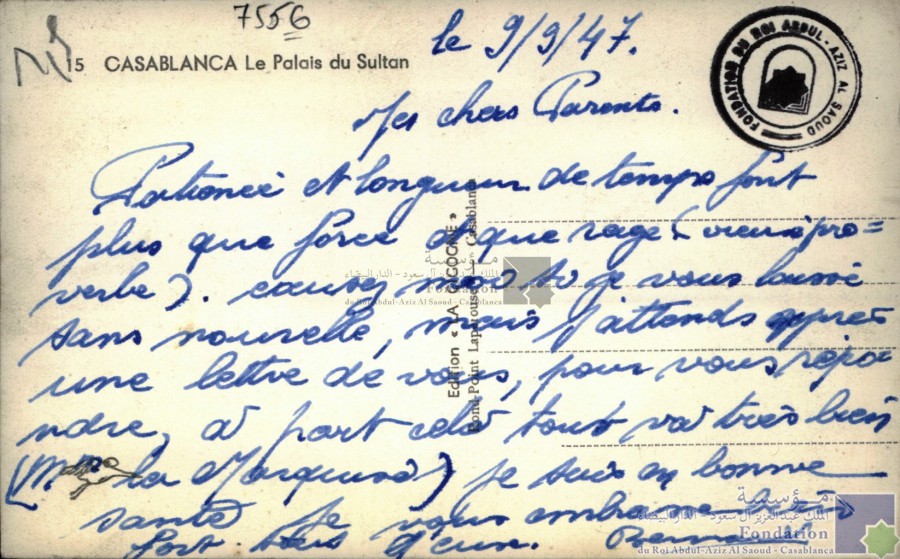 7556
15 CASABLANCA Le Palais du Sultan
le 9/9/47.
FONDATION DU ROI ABDUL-AZIZ AL SAOUD
Mes chers Parents.
Patience et longueur de temps font
plus que force et que rage (vieux pro=
verbe). si je vous laisse
sans nouvelle, mais j'attends après
une lettre de vous, pour vous répo
ndre, à part cela tout va très bien
(Mme la Marquise) je suis en bonne
santé je vous embrasse bien
fort tous deux.
Edition « LA CIGOGNE »
Rond-Point Lapérouse - Casablanca
مؤسسة
الملك عبد العزيز آل سعود - الدار البيضاء
Fondation
du Roi Abdul-Aziz Al Saoud - Casablanca
مؤسسة
الملك عبد العزيز آل سعود - الدار البيضاء
Fondation
du Roi Abdul-Aziz Al Saoud - Casablanca